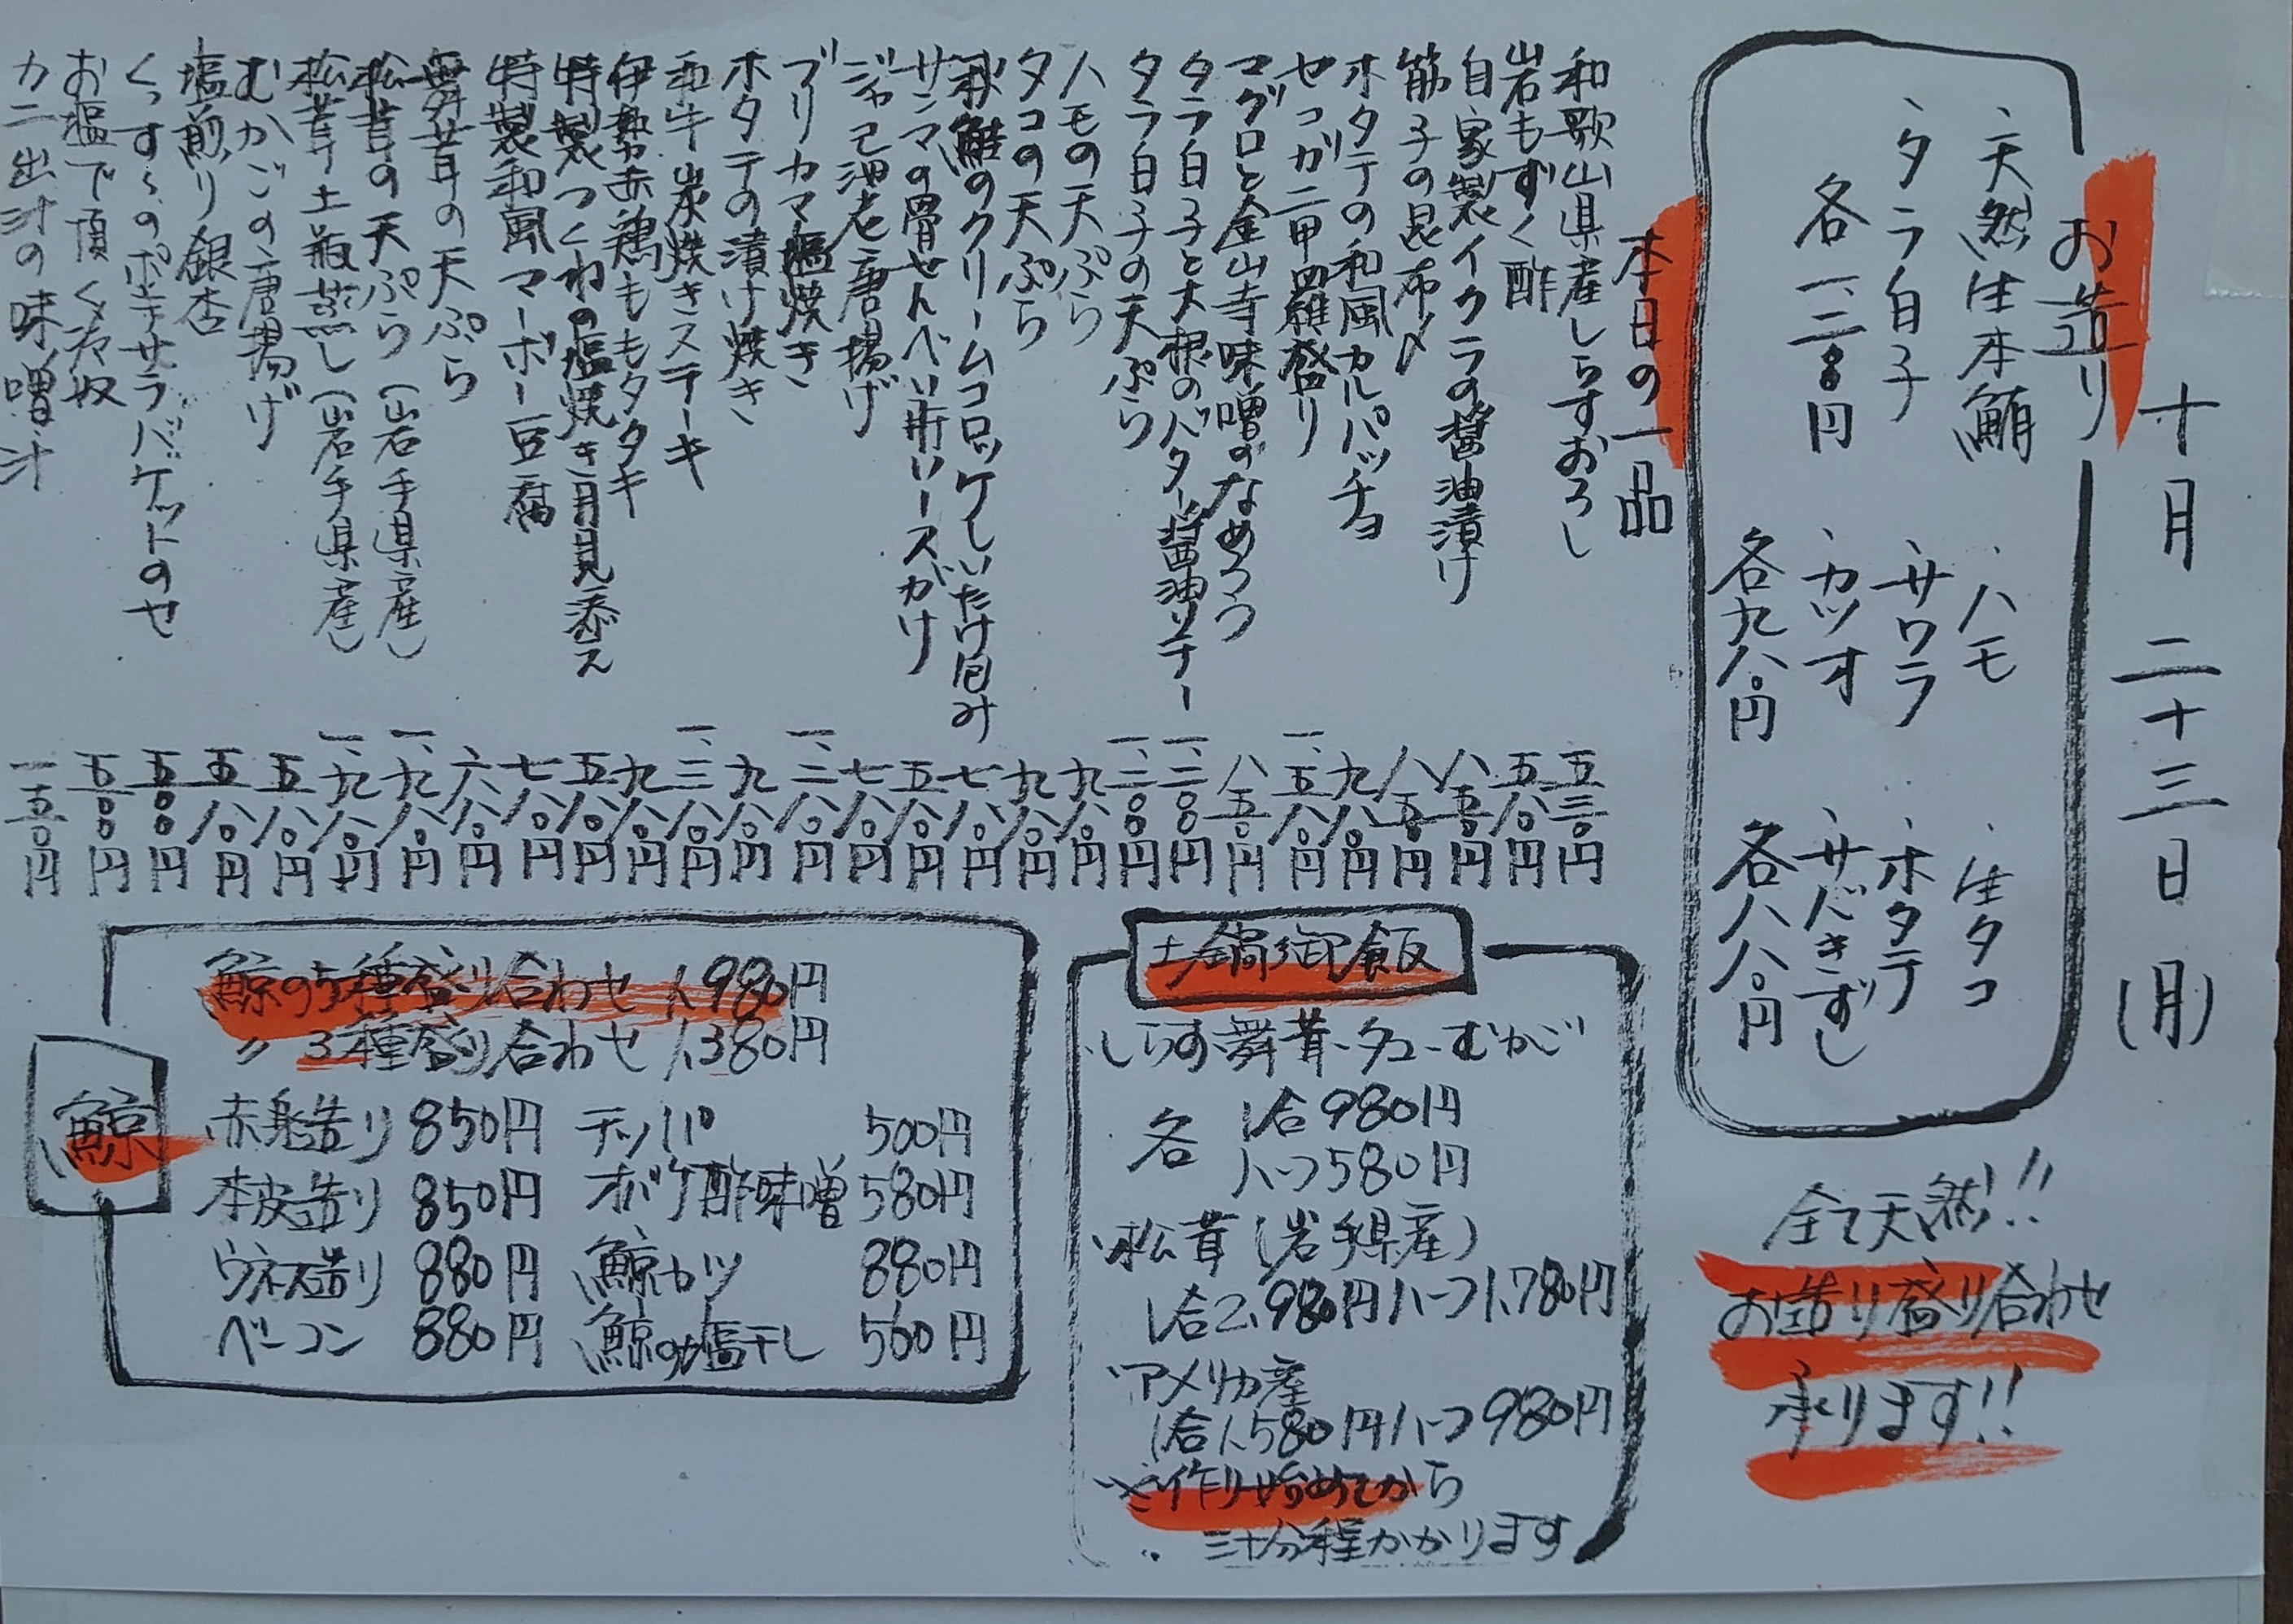 十月二十三日(月)
お造り
、天然生本鮪
、タラ白子
各一、二〇〇円
、ハモ
、サワラ
、カツオ
各九八〇円
、生タコ
、ホタテ
、サバきずし
各八八〇円
全て天然!!
お造り盛り合わせ
承ります!!
本日の一品
和歌山県産しらすおろし 五三〇円
岩もずく酢 五八〇円
自家製イクラの醤油漬け 八五〇円
筋子の昆布〆 八五〇円
ホタテの和風カルパッチョ 九八〇円
セコガニ甲羅盛り 一、五八〇円
マグロと金山寺味噌のなめろう 八五〇円
タラ白子と大根のバター醤油ソテー 一、二〇〇円
タラ白子の天ぷら 一、二〇〇円
ハモの天ぷら 九八〇円
タコの天ぷら 九八〇円
秋鮭のクリームコロッケしいたけ包み 七八〇円
サンマの骨せんべい肝ソースがけ 五八〇円
ジャコ池老唐揚げ 七八〇円
ブリカマ塩焼き 一、二八〇円
ホタテの漬け焼き 九八〇円
和牛炭焼きステーキ 一、三八〇円
伊勢赤鶏ももタタキ 九八〇円
特製つくねの塩焼き月見添え 五八〇円
特製和風マーボー豆腐 七八〇円
舞茸の天ぷら 六八〇円
松茸の天ぷら(岩手県産) 一、九八〇円
松茸土瓶蒸し(岩手県産) 一、九八〇円
むかごの唐揚げ 五八〇円
塩煎り銀杏 五八〇円
くっすぅのポテサラバケットのせ 五〇〇円
お塩で頂く冷奴 五〇〇円
カニ出汁の味噌汁 一五〇円
土鍋御飯
、しらす、舞茸、タコ、むかご
各 1合980円
ハーフ580円
、松茸(岩手県産)
1合2,980円ハーフ1,780円
、アメリカ産
1合1,580円ハーフ980円
※作り始めてから
三十分程かかります
鯨
鯨の5種盛り合わせ1,980円
〃 3種盛り合わせ1,380円
赤身造り 850円
本皮造り 850円
ウネス造り 880円
ベーコン 880円
テッパ 500円
オバケ酢味噌 580円
鯨カツ 880円
鯨の塩干し 500円